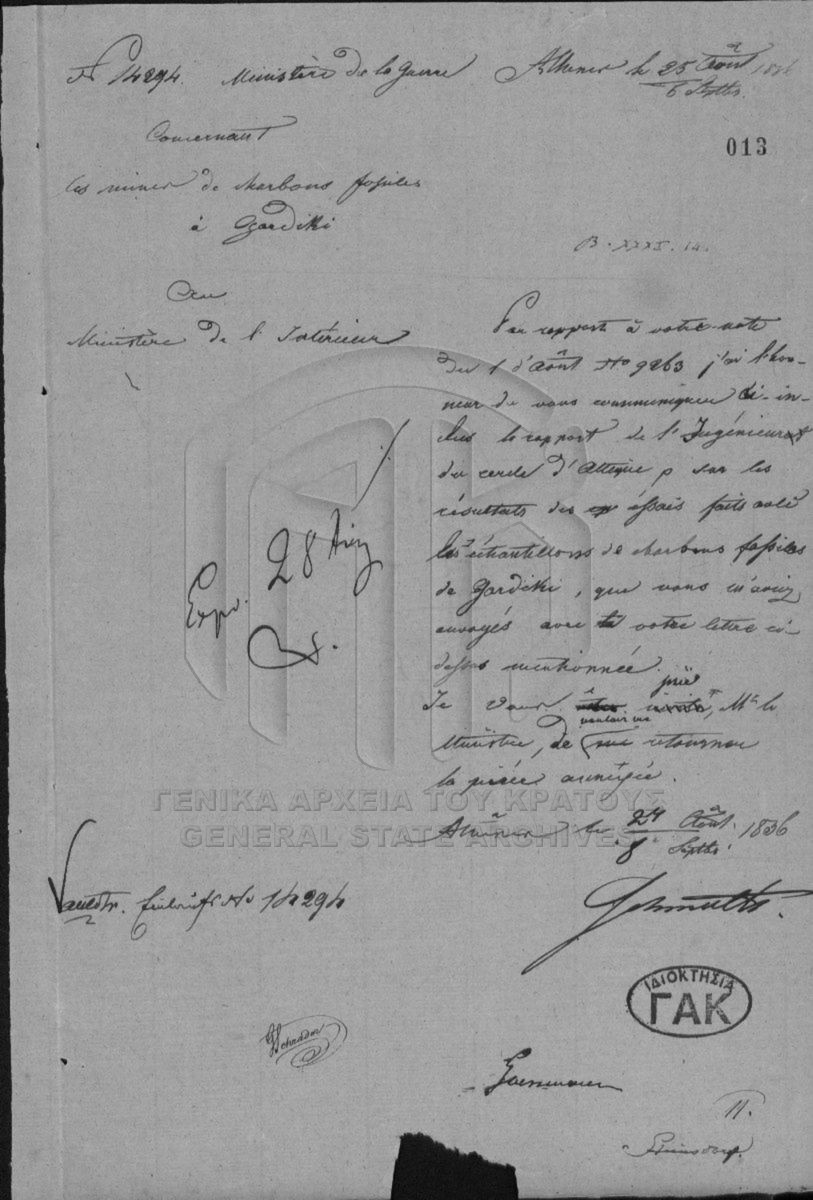 No 14294. Ministère de la guerre Athènes le 25 Août 1836
6 Septbr.
013
Concernant
les mines de charbons fossiles
à Gardiki
B. XXXI. 14.
Au
Ministère de l'Intérieur
Par rapport à votre note
du 1 d'Août No 9263 j'ai l'hon-
neur de vous communiquer ci-in-
clus le rapport de l'Ingénieur
du cercle d'Attique sur les
résultats des essais faits avec
les échantillons de charbons fossiles
de Gardiki, que vous m'avez
envoyés avec votre lettre ci-
dessus mentionnée.
prié
Je vous, Mr le
vouloir
Ministre, de me retourner
la pièce annexée.
Athènes le 24 Août 1836
8 Septbr.
Exp. 28
Schmaltz.
No 14294
ΓΕΝΙΚΑ ΑΡΧΕΙΑ ΤΟΥ ΚΡΑΤΟΥΣ
GENERAL STATE ARCHIVES
ΙΔΙΟΚΤΗΣΙΑ
ΓΑΚ
Schrader
11.